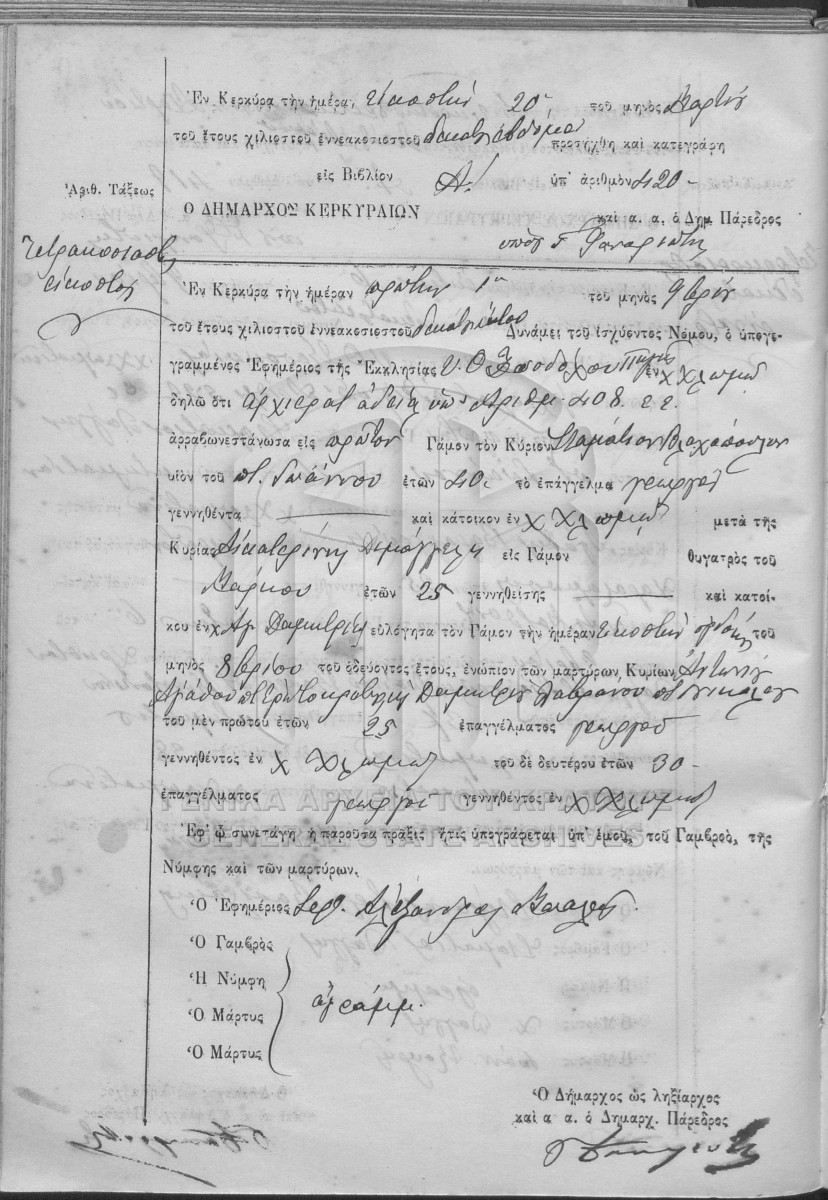 Ἐν Κερκύρᾳ τὴν ἡμέραν εἰκοστὴν 20ην τοῦ μηνὸς Μαρτίου
τοῦ ἔτους χιλιοστοῦ ἐννεακοσιοστοῦ δεκάτου ἑβδόμου προσήχθη καὶ κατεγράφη
εἰς Βιβλίον Α! ὑπ' ἀριθμὸν 420-
Ἀριθ. Τάξεως
Ο ΔΗΜΑΡΧΟΣ ΚΕΡΚΥΡΑΙΩΝ
καὶ α. α. ὁ Δημ. Πάρεδρος
Τετρακοσιοστὸς
εἰκοστὸς
Ἐν Κερκύρᾳ τὴν ἡμέραν πρώτην 1ην τοῦ μηνὸς 9βρίου
τοῦ ἔτους χιλιοστοῦ ἐννεακοσιοστοῦ Δυνάμει τοῦ ἰσχύοντος Νόμου, ὁ ὑπογε-
γραμμένος Ἐφημέριος τῆς Ἐκκλησίας Υ. Θ. ἐν χ Χλωμοῦ
δηλῶ ὅτι ἀρχιερατ ἀδείᾳ ὑπ' Ἀριθμ. 408. ἐ.ἐ.
ἀρραβωνεστάνωσα εἰς πρῶτον Γάμον τὸν Κύριον Σταμάτιον Βλαχόπουλον
υἱὸν τοῦ Ἰωάννου ἐτῶν 40. τὸ ἐπάγγελμα γεωργοῦ
γεννηθέντα καὶ κάτοικον ἐν χ Χλωμοῦ μετὰ τῆς
Κυρίας Αἰκατερίνης εἰς Γάμον θυγατρὸς τοῦ
Μάρκου ἐτῶν 25 γεννηθείσης καὶ κατοί-
κου ἐν χ Αγ Δημητρίου εὐλόγησα τὸν Γάμον τὴν ἡμέραν εἰκοστὴν ὀγδόην τοῦ
μηνὸς 8βρίου τοῦ ὁδεύοντος ἔτους, ἐνώπιον τῶν μαρτύρων, Κυρίων, Ἀντωνίου
Δημητρίου Λαβράνου Νικολάου
τοῦ μὲν πρώτου ἐτῶν 25 ἐπαγγέλματος γεωργοῦ
γεννηθέντος ἐν χ Χλωμοῦ τοῦ δὲ δευτέρου ἐτῶν 30-
ἐπαγγέλματος γεωργοῦ γεννηθέντος ἐν χ Χλωμοῦ
ΓΕΝΙΚΑ ΑΡΧΕΙΑ ΤΟΥ ΚΡΑΤΟΥΣ
GENERAL STATE ARCHIVES
Ἐφ' ᾧ συνετάγη ἡ παροῦσα πρᾶξις ἥτις ὑπογράφεται ὑπ' ἐμοῦ, τοῦ Γαμβροῦ, τῆς
Νύμφης καὶ τῶν μαρτύρων.
Ὁ Ἐφημέριος Ἀλέξανδρος
Ὁ Γαμβρὸς
Ἡ Νύμφη
ἀγράμμ.
Ὁ Μάρτυς
Ὁ Μάρτυς
Ὁ Δήμαρχος ὡς ληξίαρχος
καὶ α α. ὁ Δημαρχ. Πάρεδρος